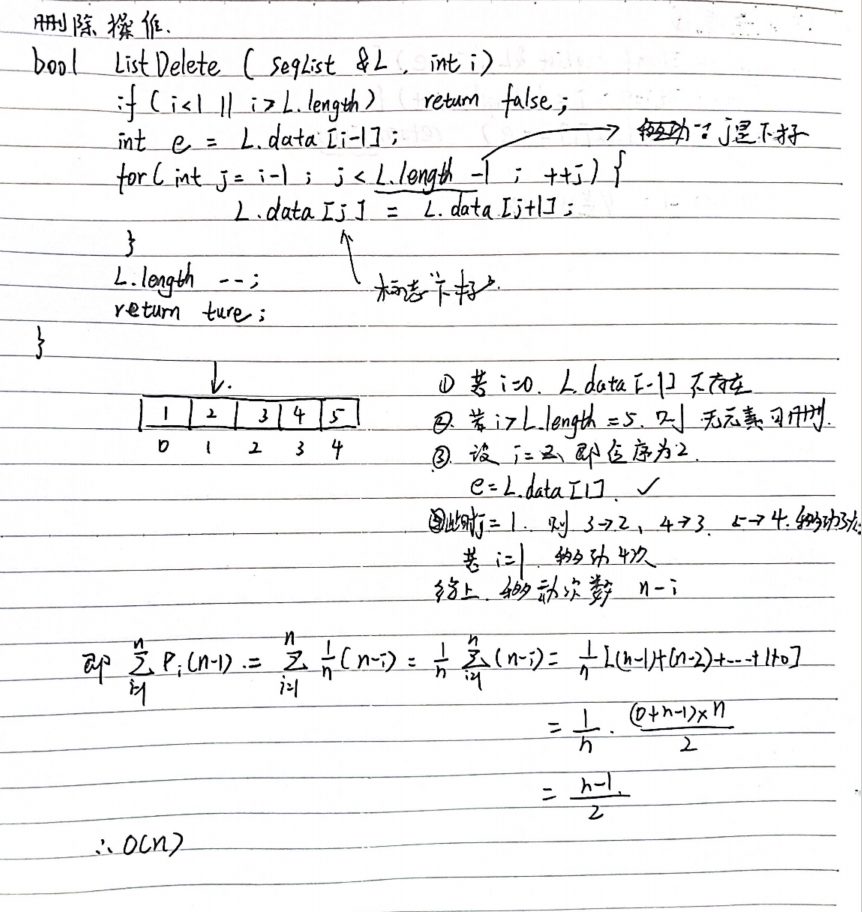 删除操作.
bool ListDelete ( SeqList &L, int i)
if (i<1 || i>L.length) return false;
int e = L.data[i-1];
∵ j是下标
for( int j=i-1 ; j<L.length -1 ; ++j) {
L.data [j] = L.data[j+1];
}
标志"下标".
L.length --;
return ture;
}
1 2 3 4 5
0 1 2 3 4
① 若 i=0. L.data[-1] 不存在
②. 若 i>L.length =5. 则 无元素可删.
③. 设 i=2 即位序为2.
e=L.data[1]. ✓
④此时j=1. 则 3→2、4→3. 5→4. 移动3次
若 i=1 移动4次
综上. 移动次数 n-i
即 \sum_{i=1}^{n} P_i(n-1) = \sum_{i=1}^{n} \frac{1}{n}(n-i) = \frac{1}{n} \sum_{i=1}^{n}(n-i) = \frac{1}{n}[(n-1)+(n-2)+---+1+0]
= \frac{1}{n} · \frac{(0+n-1)×n}{2}
= \frac{n-1}{2}.
∴ O(n)